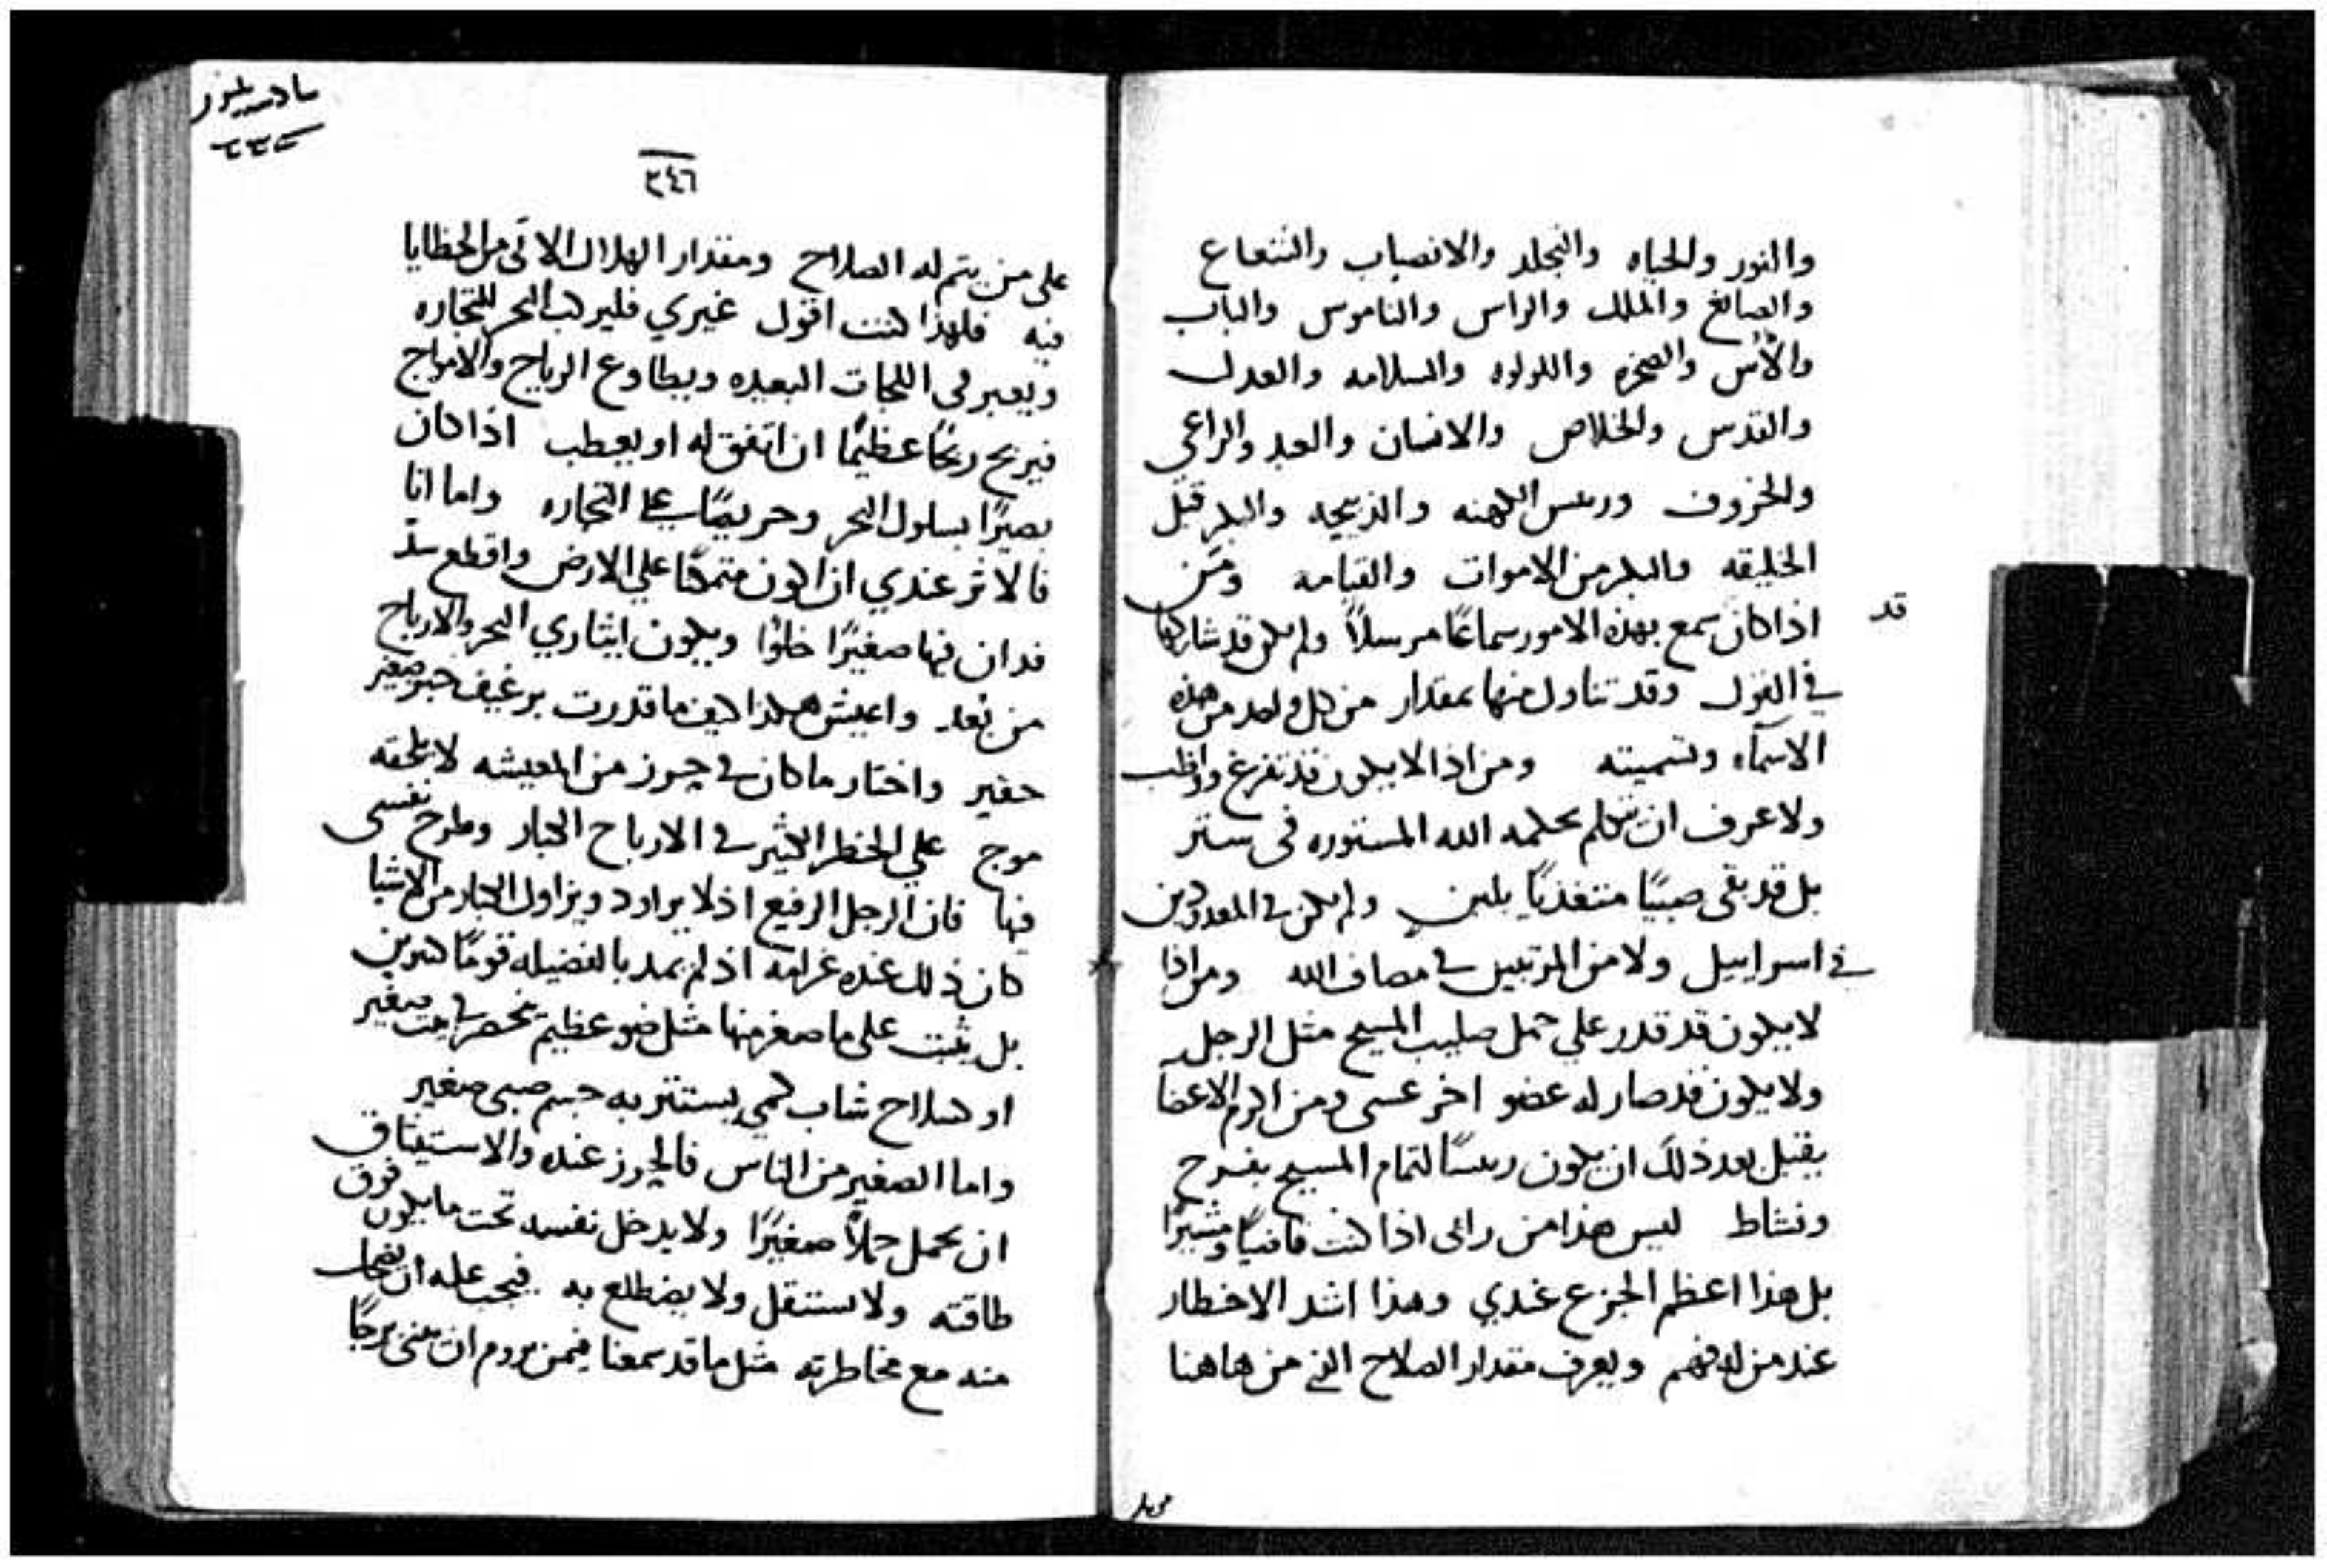 والنور والحياه والتجلد والانصباب والشعاع
والصانع والملك والراس والناموس والباب
والأس والصخره واللولوه والسلامه والعدل
والقدس والخلاص والانسان والعبد والراعي
والخروف وريس الكهنه والذبيحه والبكر قبل
الخليقه والبكر من الاموات والقيامه ومن
قد
اذا كان سمع بهذه الامور سماعًا مرسلاً ولم يكن قد شاركها
في القول وقد تناول منها بمقدار من كل واحد من هذه
الاسمآء وتسميته ومن اذا لا يكون قد تفرغ وواظب
ولا عرف ان يتكلم بحكمه الله المستوره في ستر
بل قد بقى صبيًا متغذيًا بلبن ولم يكن في المعدودين
في اسراييل ولا من المرتبين في مصاف الله ومن اذا
لا يكون قد قدر علي حمل صليب المسيح مثل الرجل
ولا يكون قد صار له عضو اخر عسى ومن اكرم الاعضآ
يقبل بعد ذلك ان يكون ريسًا لتمام المسيح بفرح
ونشاط ليس هذا من راى اذا كنت قاضيًا ومشيرًا
بل هذا اعظم الجزع عندي وهذا اشد الاخطار
عند من له فهم ويعرف مقدار الصلاح التي من هاهنا
٢٤٦
على من يتم له الصلاح ومقدار الهلاك الاتى من الخطايا
فيه فلهذا كنت اقول غيري فليركب البحر للتجاره
ويعبر في اللجات البعيده ويطاوع الرياح والامواج
فيربح ربحًا عظيمًا ان اتفق له او يعطب اذا كان
بصيرًا بسلوك البحر وحريصًا على التجاره واما انا
فالاثر عندي ان اكون متمكنًا علي الارض واقطع
فدان فيها صغيرًا حلوًا ويكون ايثاري البحر والارباح
من بُعد واعيش هكذا كيف ما قدرت برغيف خبز صغير
حقير واختار ما كان في حرز من المعيشه لا يلحقه
موج علي الخطر الكثير في الارباح الكبار وطرح نفسى
فيها فان الرجل الرفيع اذ لا يراود ويزاول الكبار من الاشيا
كان ذلك عنده غرامه اذ لم يمد بالفضيله قومًا كثيرين
بل يثبت على ما صغر منها مثل ضو عظيم يحصر في بيت صغير
او سلاح شاب كمي يستتر به جسم صبي صغير
واما الصغير من الناس فالحرز عنده والاستيثاق
ان يحمل حملاً صغيرًا ولا يدخل نفسه تحت ما يكون فوق
طاقته ولا يستقل ولا يضطلع به فيجب عليه ان يضحك
منه مع مخاطرته مثل ما قد سمعنا فيمن يروم ان يبنى برجًا